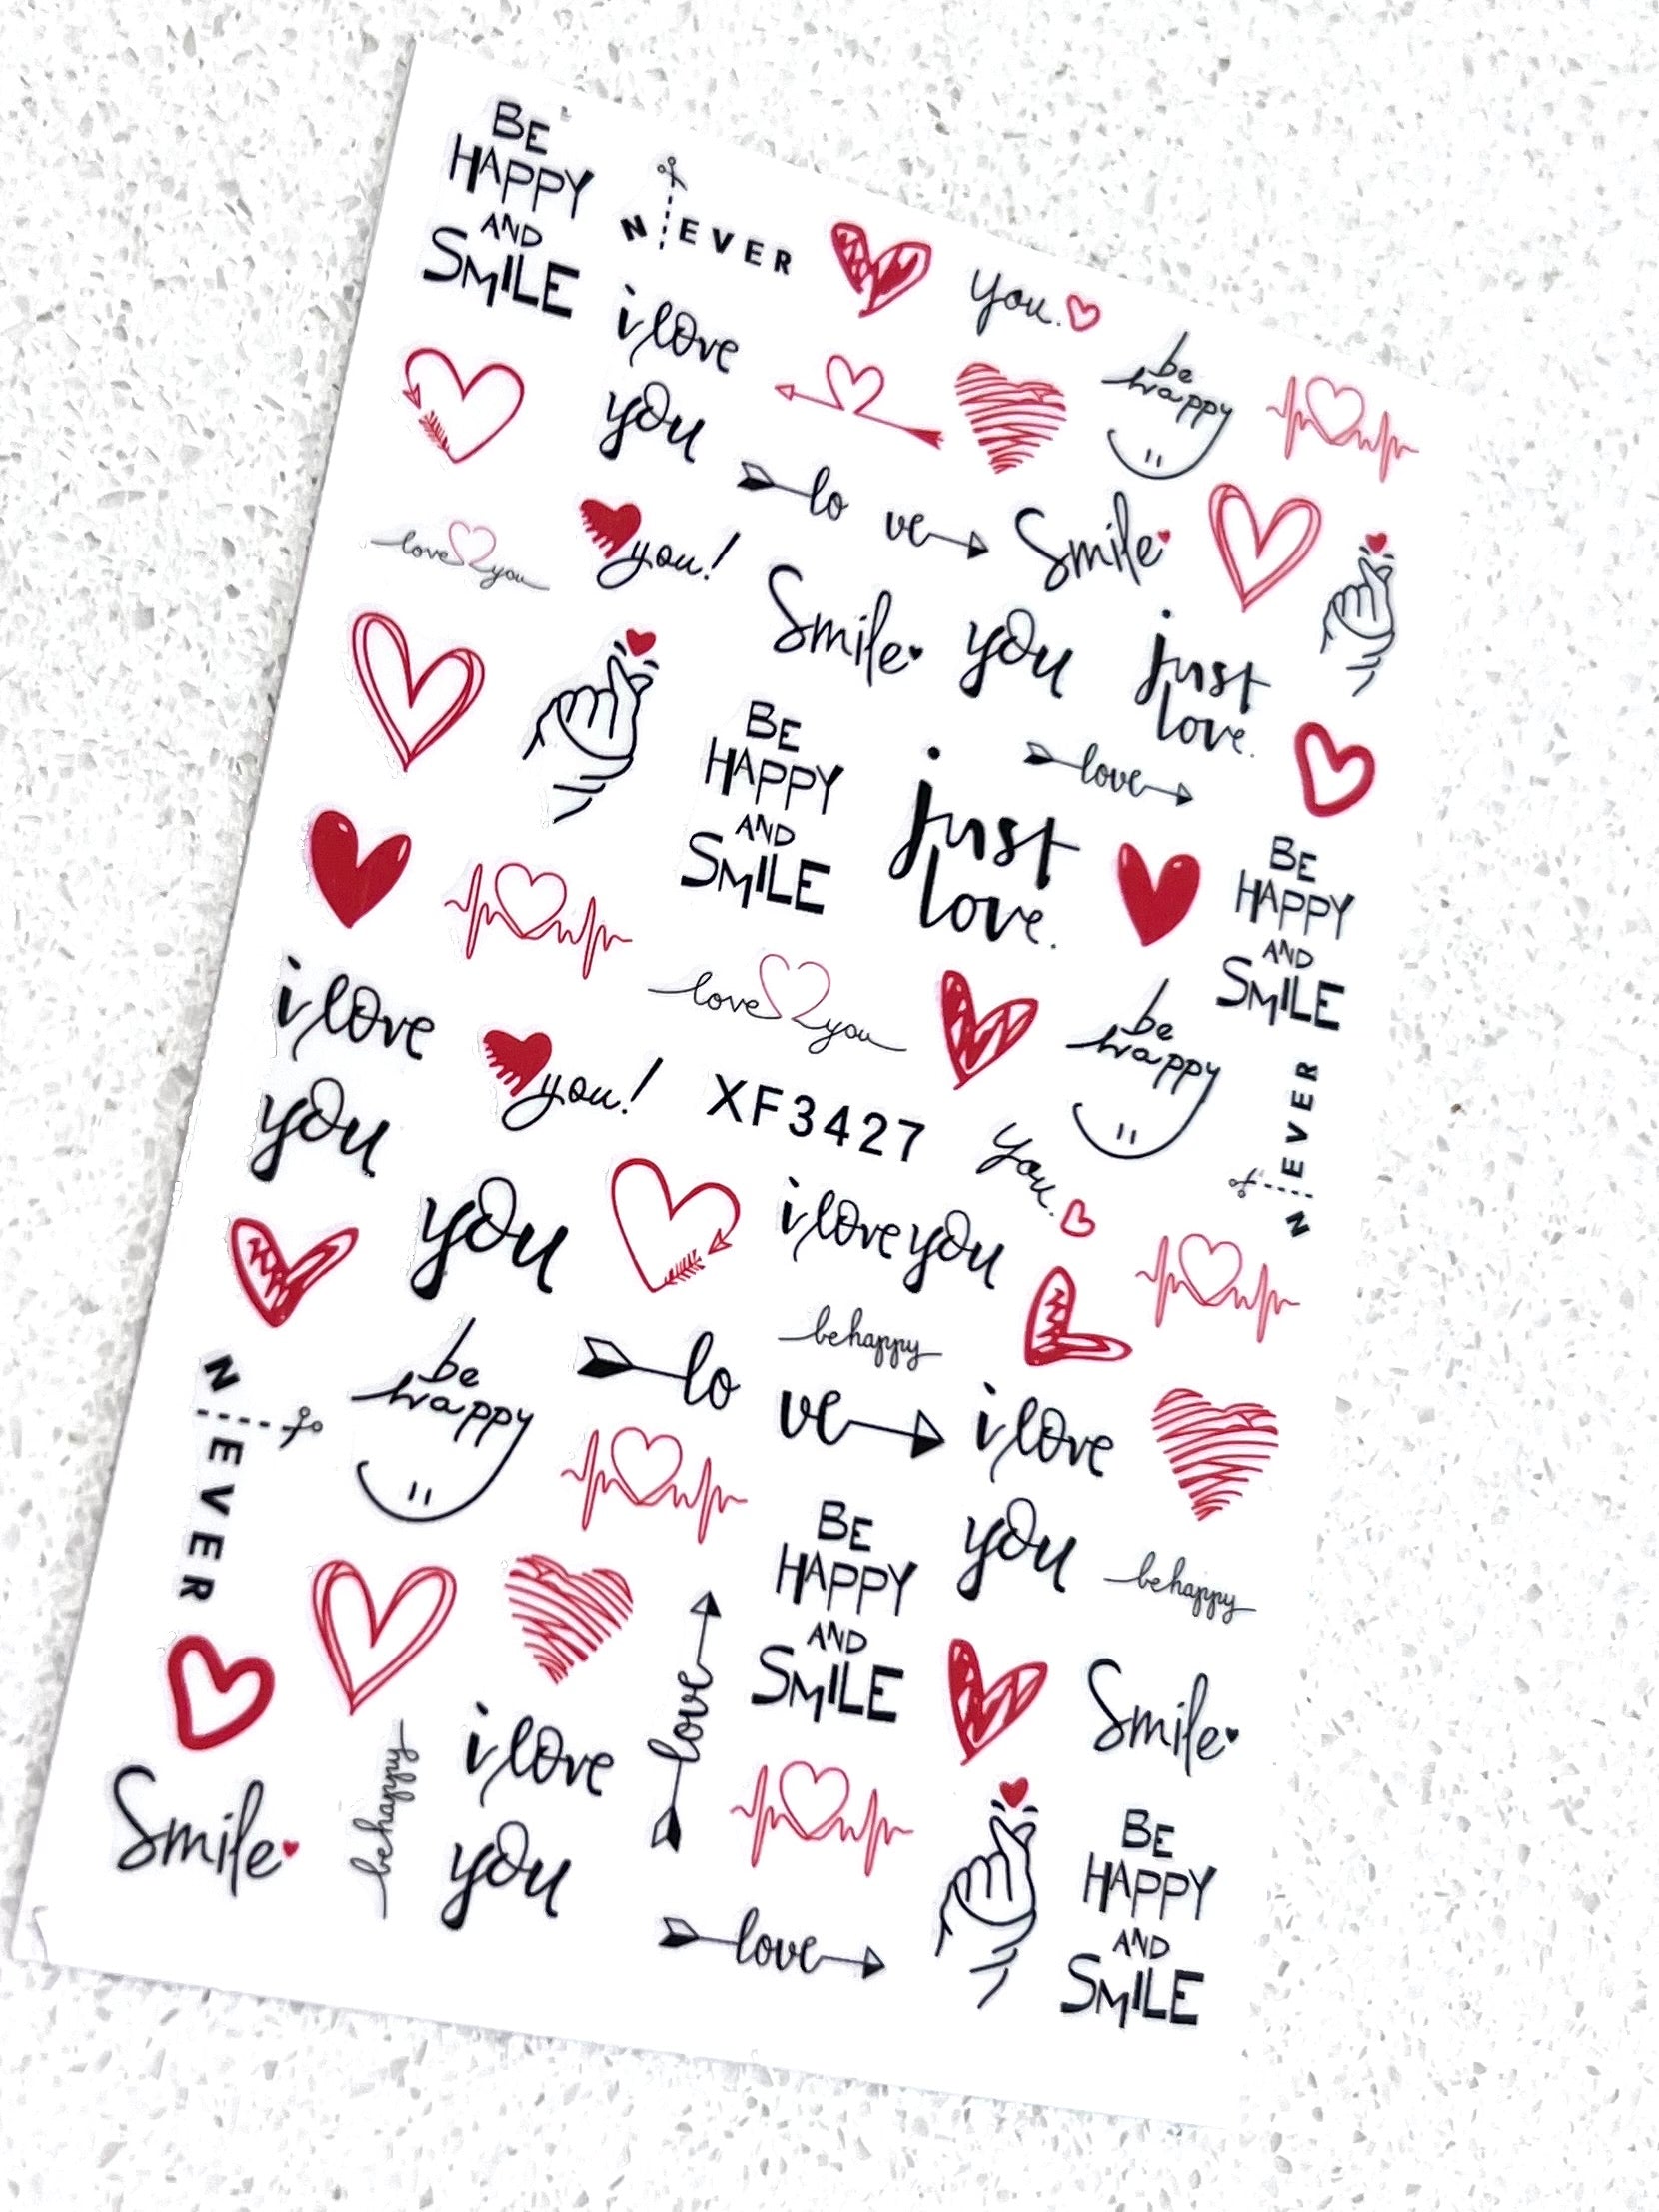 BE
HAPPY
AND
SMILE
N EVER
you.
i love
you
be
happy
lo ve
Smile
love you
you!
Smile
you
just
love.
BE
HAPPY
AND
SMILE
love
just
love.
BE
HAPPY
AND
SMILE
i love
you
love you
be
happy
you!
XF3427
you.
N EVER
you
i love you
be happy
N EVER
be
happy
lo ve
i love
you
BE
HAPPY
AND
SMILE
be happy
love
Smile
Smile
be happy
i love
you
love
BE
HAPPY
AND
SMILE